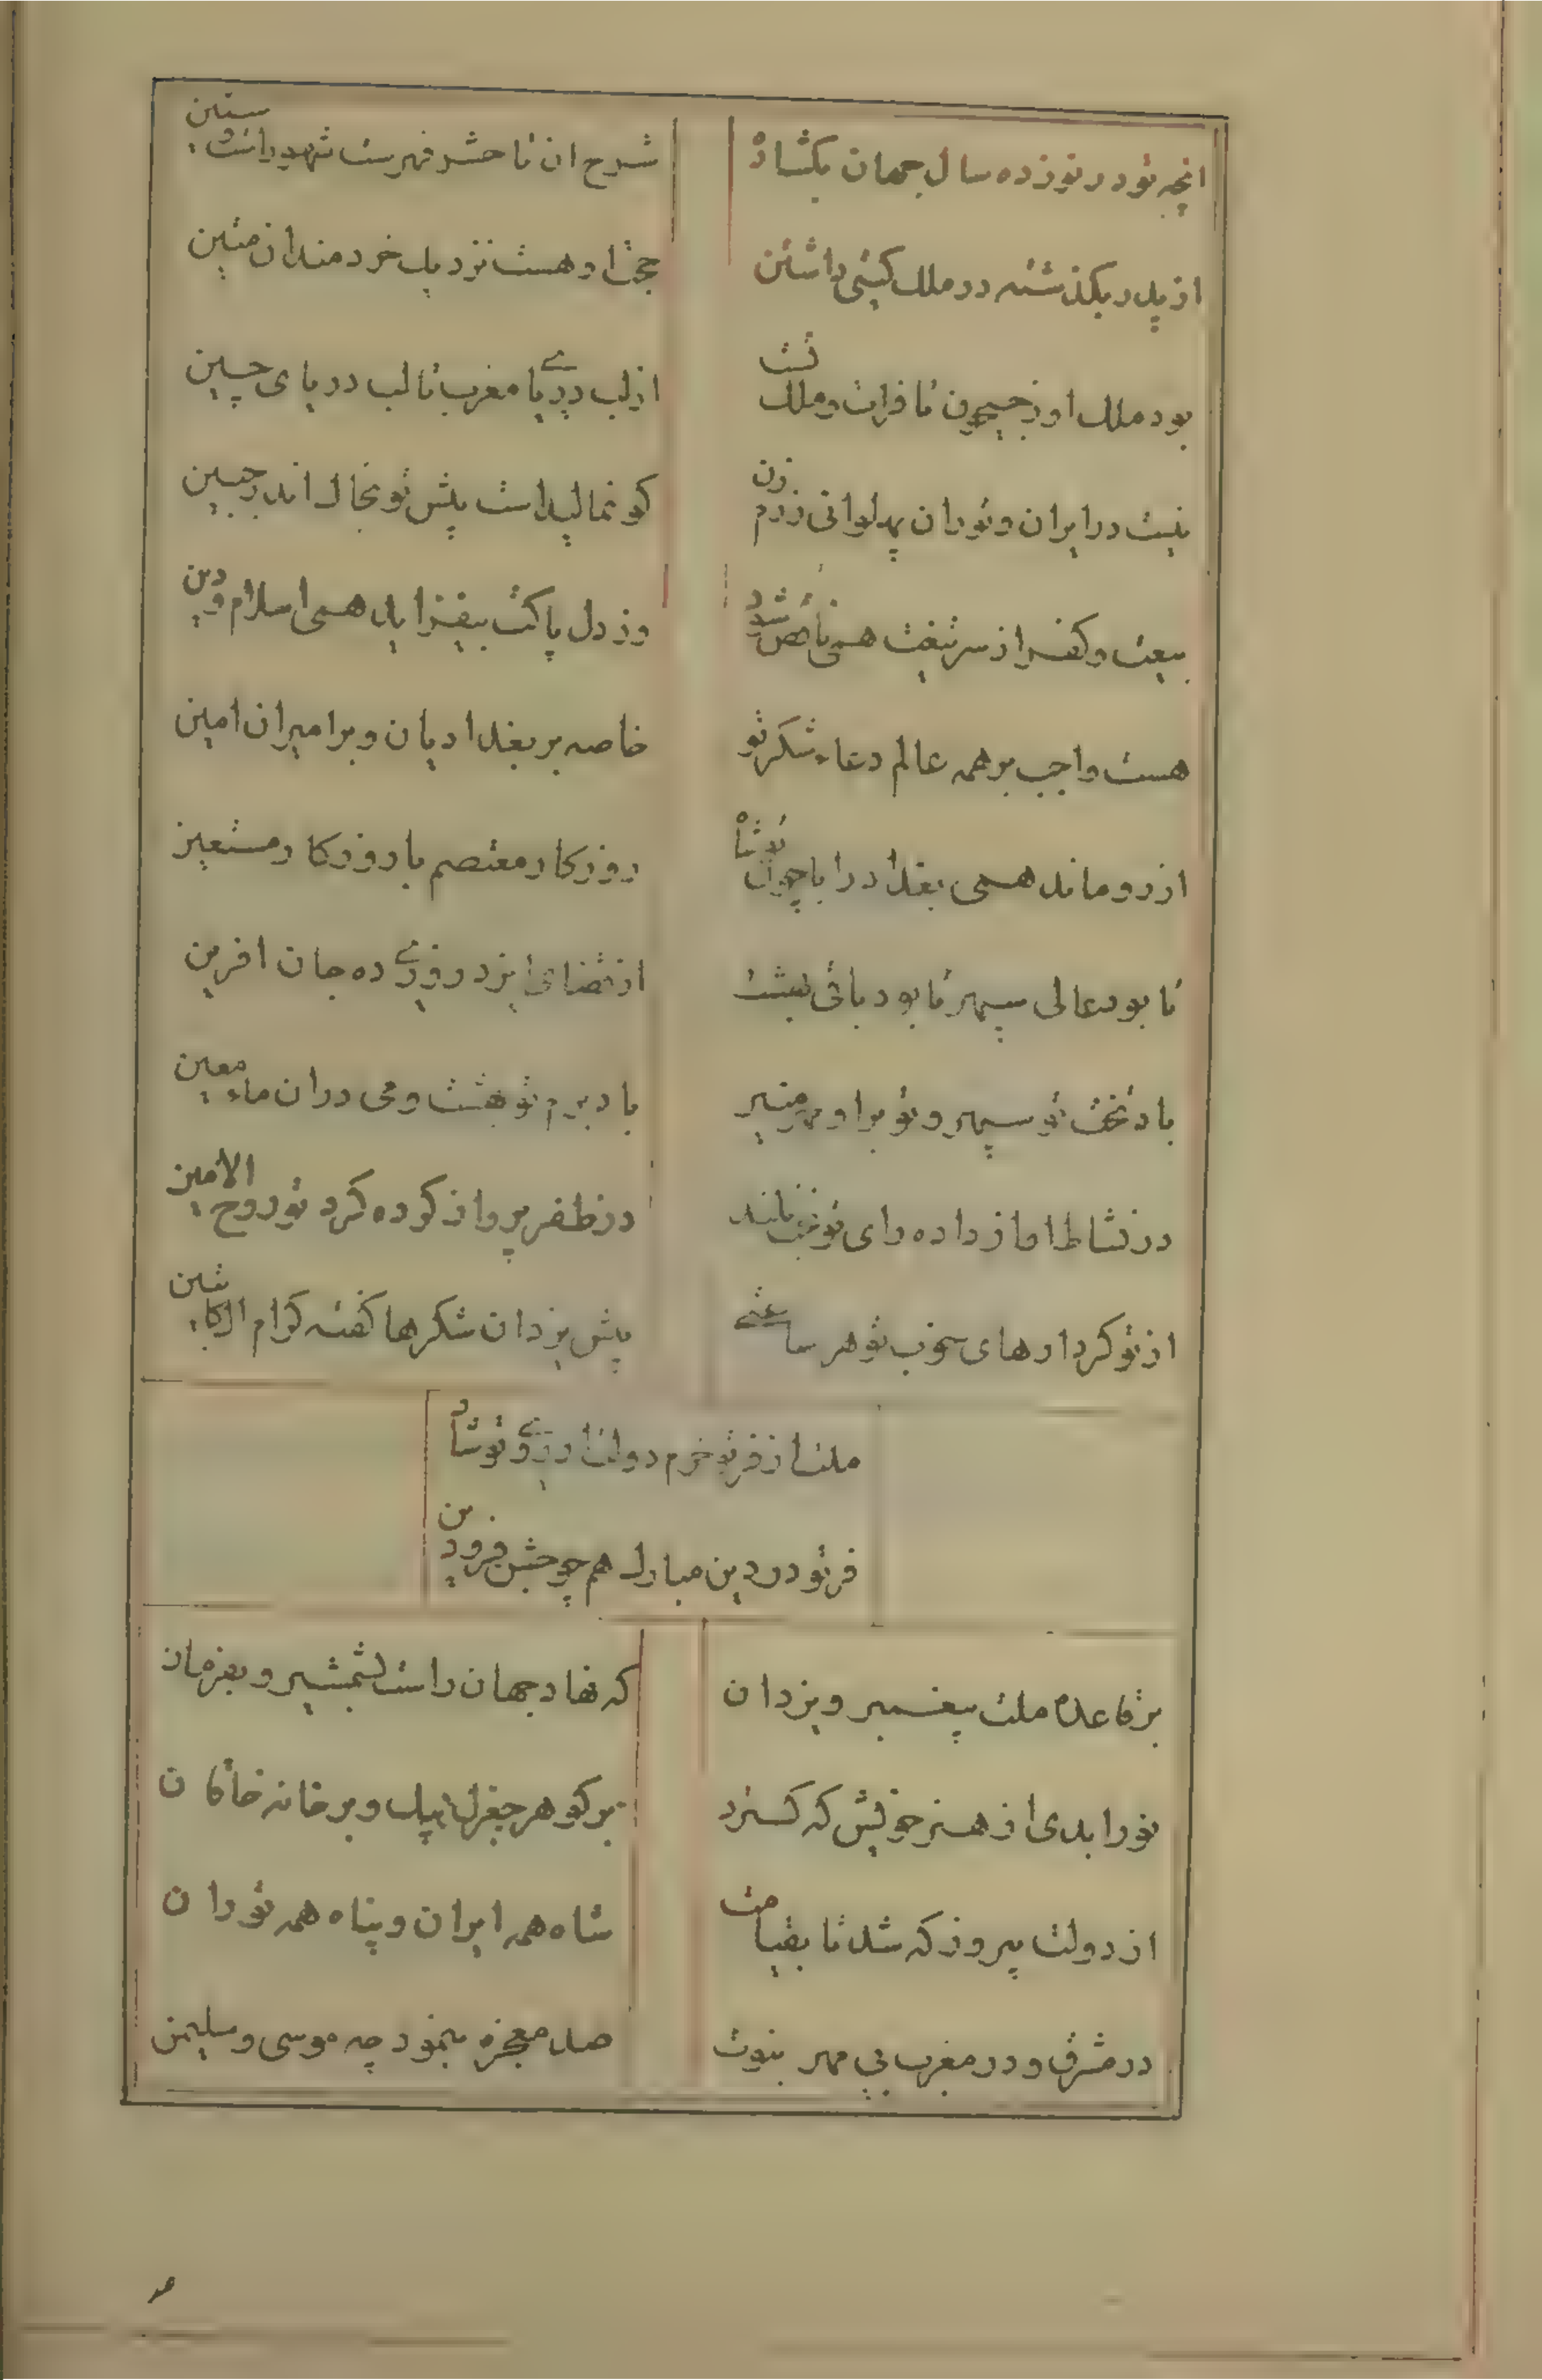 انچه تو در نوزده سال جهان بکشاده
شرح ان تا حشر فهرست شهور است و سنین
از پدر بکذشته در ملک کیتی داشتن
حجت او هست نزدیک خردمندان متین
بود ملک او ز جیحون تا فرات و ملک تست
از لب دریای مغرب تا لب دریای چین
نیست در ایران و توران پهلوانی رزم زن
کو نمالیداست پیش تو بخاک اندر جبین
بیعت و کفر از سر تیغت همی ناقص شود
وز دل پاکت بیفزاید همی اسلام و دین
هست واجب بر همه عالم دعاء شکر تو
خاصه بر بغدادیان و بر امیران امین
از رو ماند همی بغداد را با چون تو شاه
روزکار معتصم با روزکار مستعین
تا بود عالی سپهر تا بود باقی بهشت
از قضای ایزد روزی ده جان افرین
باد تخت تو سپهر و تو بر او مهر منیر
باد بزم تو بهشت و می در ان ماء معین
در نشاط اواز داده رای تو بخت بلند
در ظفر پرواز کرده کرد تو روح الامین
از تو کردارهای خوب تو هر ساعتی
پیش یزدان شکرها کفته کرام الکاتبین
ملت از فر تو خرم دولت از روی تو شاد
فر تو در دین مبارک هم چو جشن فرودین
بر قاعده ملت پیغمبر و یزدان
که نهاد جهان راست بشمشیر و بفرمان
تو را بدی از هنر خویش که کسترد
بر کوهر جغرل بیک و بر خانه خاقان
از دولت پیروز که شد تا بقیامت
شاه همه ایران و پناه همه توران
در مشرق و در مغرب بی مهر نبوت
صد معجزه بنمود چه موسی و سلیمن